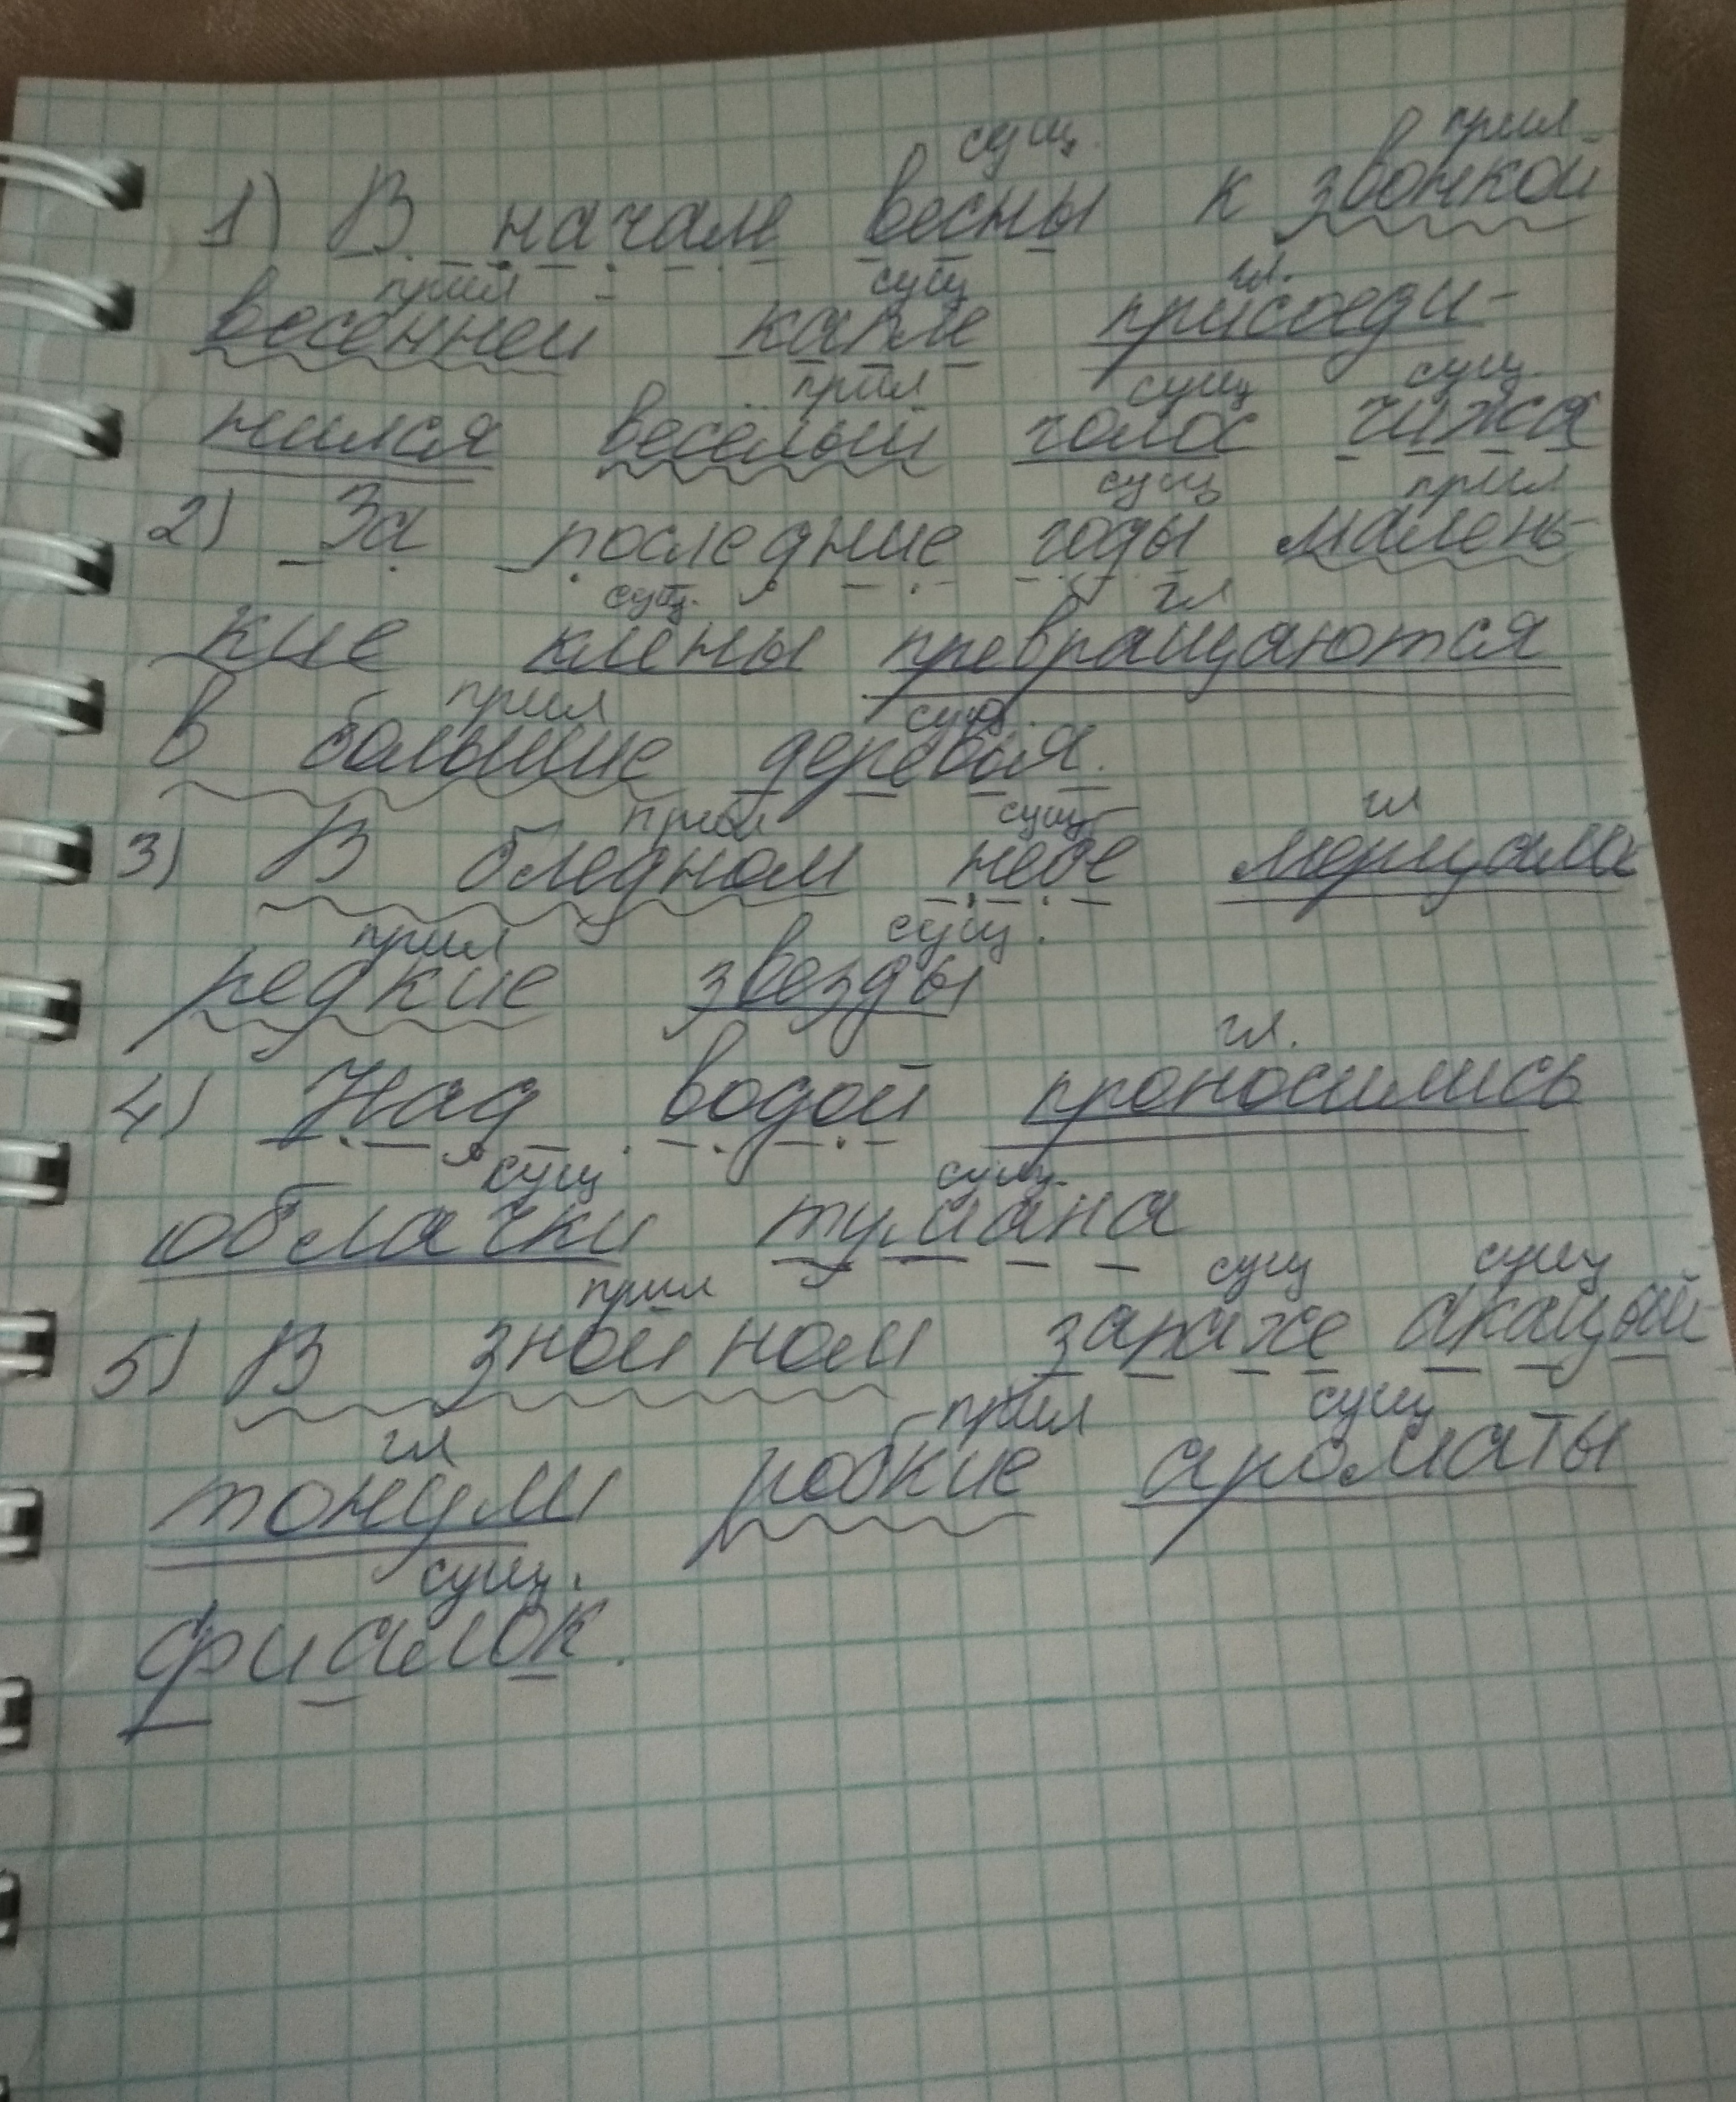 сущ. прил.
1) В начале весны к звонкой
прил сущ гл.
весенней капле присоеди-
прил сущ сущ.
нился весёлый голос чижа
сущ прил
2) За последние годы малень-
сущ. гл
кие клены превращаются
прил сущ.
в большие деревья.
прил сущ гл
3) В бледном небе мерцала
прил сущ.
редкие звезды
гл.
4) Над водой проносились
сущ сущ.
облачки тумана
прил сущ сущ
5) В знойном зараже акацый
гл прил сущ
тонули робкие ароматы
сущ.
фиалок.